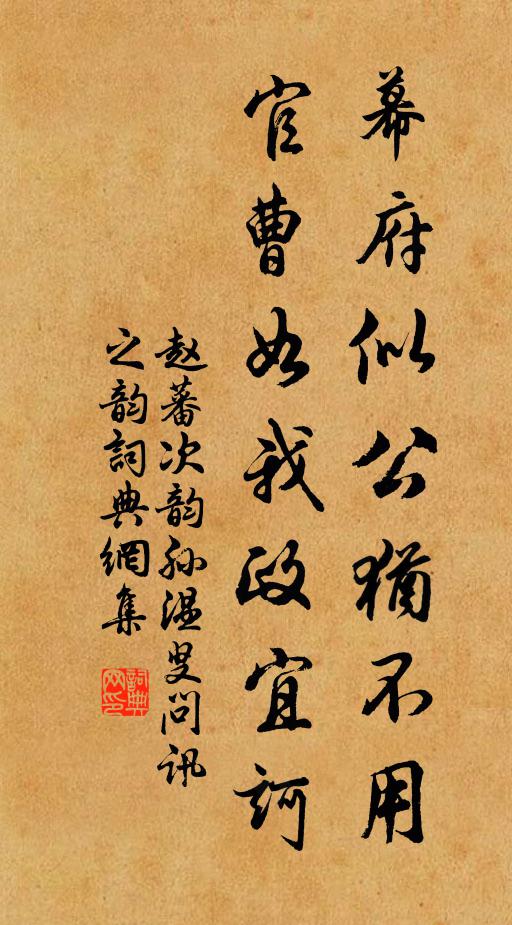 幕府似公犹不用
官曹如我政宜訶
赵蕃次韵孙温叟问讯
之韵詞典網集
詞典网印